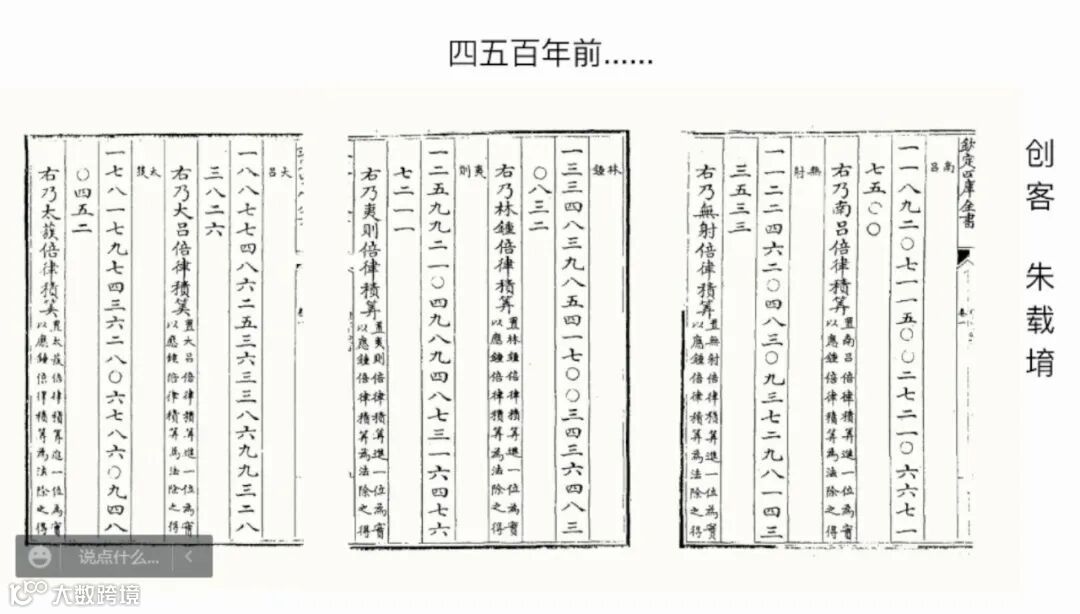 四五百年前......
大呂
一八八七七四八六二五三六三三八六九九三二八
三八二六
右乃大呂倍律積筭
置大呂倍律積筭進一位為實
以應鍾倍律積筭為法除之得
太蔟
一七八一七九七四三六二八〇六七八六〇九四八
〇四五二
右乃太蔟倍律積筭
置太蔟倍律積筭進一位為實
以應鍾倍律積筭為法除之得
林鍾
一三三四八三九八五四一七〇〇三四三六四八三
〇八三二
右乃林鍾倍律積筭
置林鍾倍律積筭進一位為實
以應鍾倍律積筭為法除之得
夷則
一二五九九二一〇四九八九四八七三一六四七六
七二一一
右乃夷則倍律積筭
置夷則倍律積筭進一位為實
以應鍾倍律積筭為法除之得
欽定四庫全書
南呂
一一八九二〇七一一五〇〇二七二一〇六六七一
七五〇〇
右乃南呂倍律積筭
置南呂倍律積筭進一位為實
以應鍾倍律積筭為法除之得
無射
一一二二四六二〇四八三〇九三七二九八一四三
三五三三
右乃無射倍律積筭
置無射倍律積筭進一位為實
以應鍾倍律積筭為法除之得
创客 朱载堉
说点什么...
大数跨境